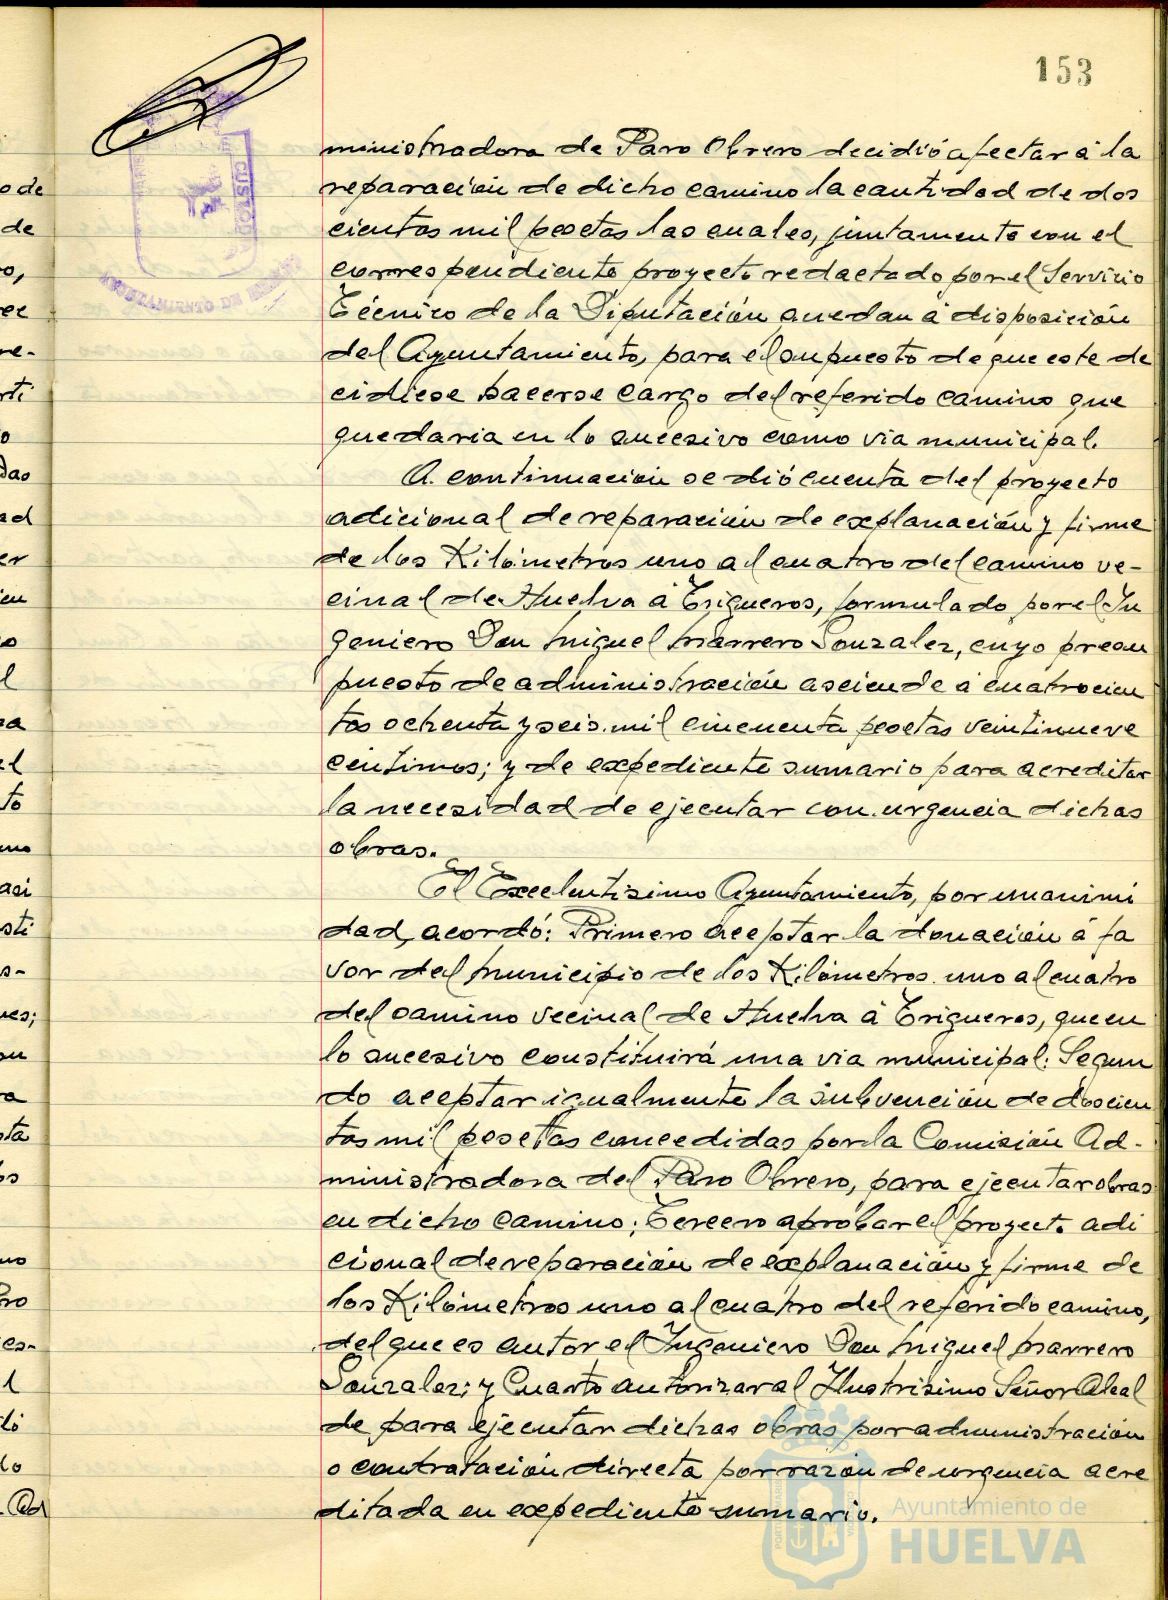 153
ministradora de Paro Obrero decidió afectar á la
reparación de dicho camino la cantidad de dos
cientas mil pesetas las cuales, juntamente con el
correspondiente proyecto redactado por el Servicio
Técnico de la Diputación quedan á disposición
del Ayuntamiento, para el supuesto de que este de
cidiese hacerse cargo del referido camino que
quedaria en lo sucesivo como via municipal.
A continuación se dió cuenta del proyecto
adicional de reparación de explanación y firme
de los Kilómetros uno al cuatro del camino ve-
cinal de Huelva á Trigueros, formulado por el In
geniero Don Miguel Marrero Gonzalez, cuyo presu
puesto de administración asciende á cuatrocien
tas ochenta y seis mil cincuenta pesetas veintinueve
centimos; y de expediente sumario para acreditar
la necesidad de ejecutar con urgencia dichas
obras.
El Excelentisimo Ayuntamiento, por unanimi
dad, acordó: Primero aceptar la donación á fa
vor del Municipio de los Kilómetros uno al cuatro
del camino vecinal de Huelva á Trigueros, que en
lo sucesivo constituirá una via municipal: Segun
do aceptar igualmente la subvención de doscien
tas mil pesetas concedidas por la Comisión Ad-
ministradora del Paro Obrero, para ejecutar obras
en dicho camino; Tercero aprobar el proyecto adi
cional de reparación de explanación y firme de
los Kilómetros uno al cuatro del referido camino,
del que es autor el Ingeniero Don Miguel Marrero
Gonzalez; y Cuarto autorizar al Ilustrisimo Señor Alcal
de para ejecutar dichas obras por administración
o contratación directa por razón de urgencia acre
ditada en expediente sumario.
AYUNTAMIENTO DE HUELVA
CUSTOD
Ayuntamiento de
HUELVA